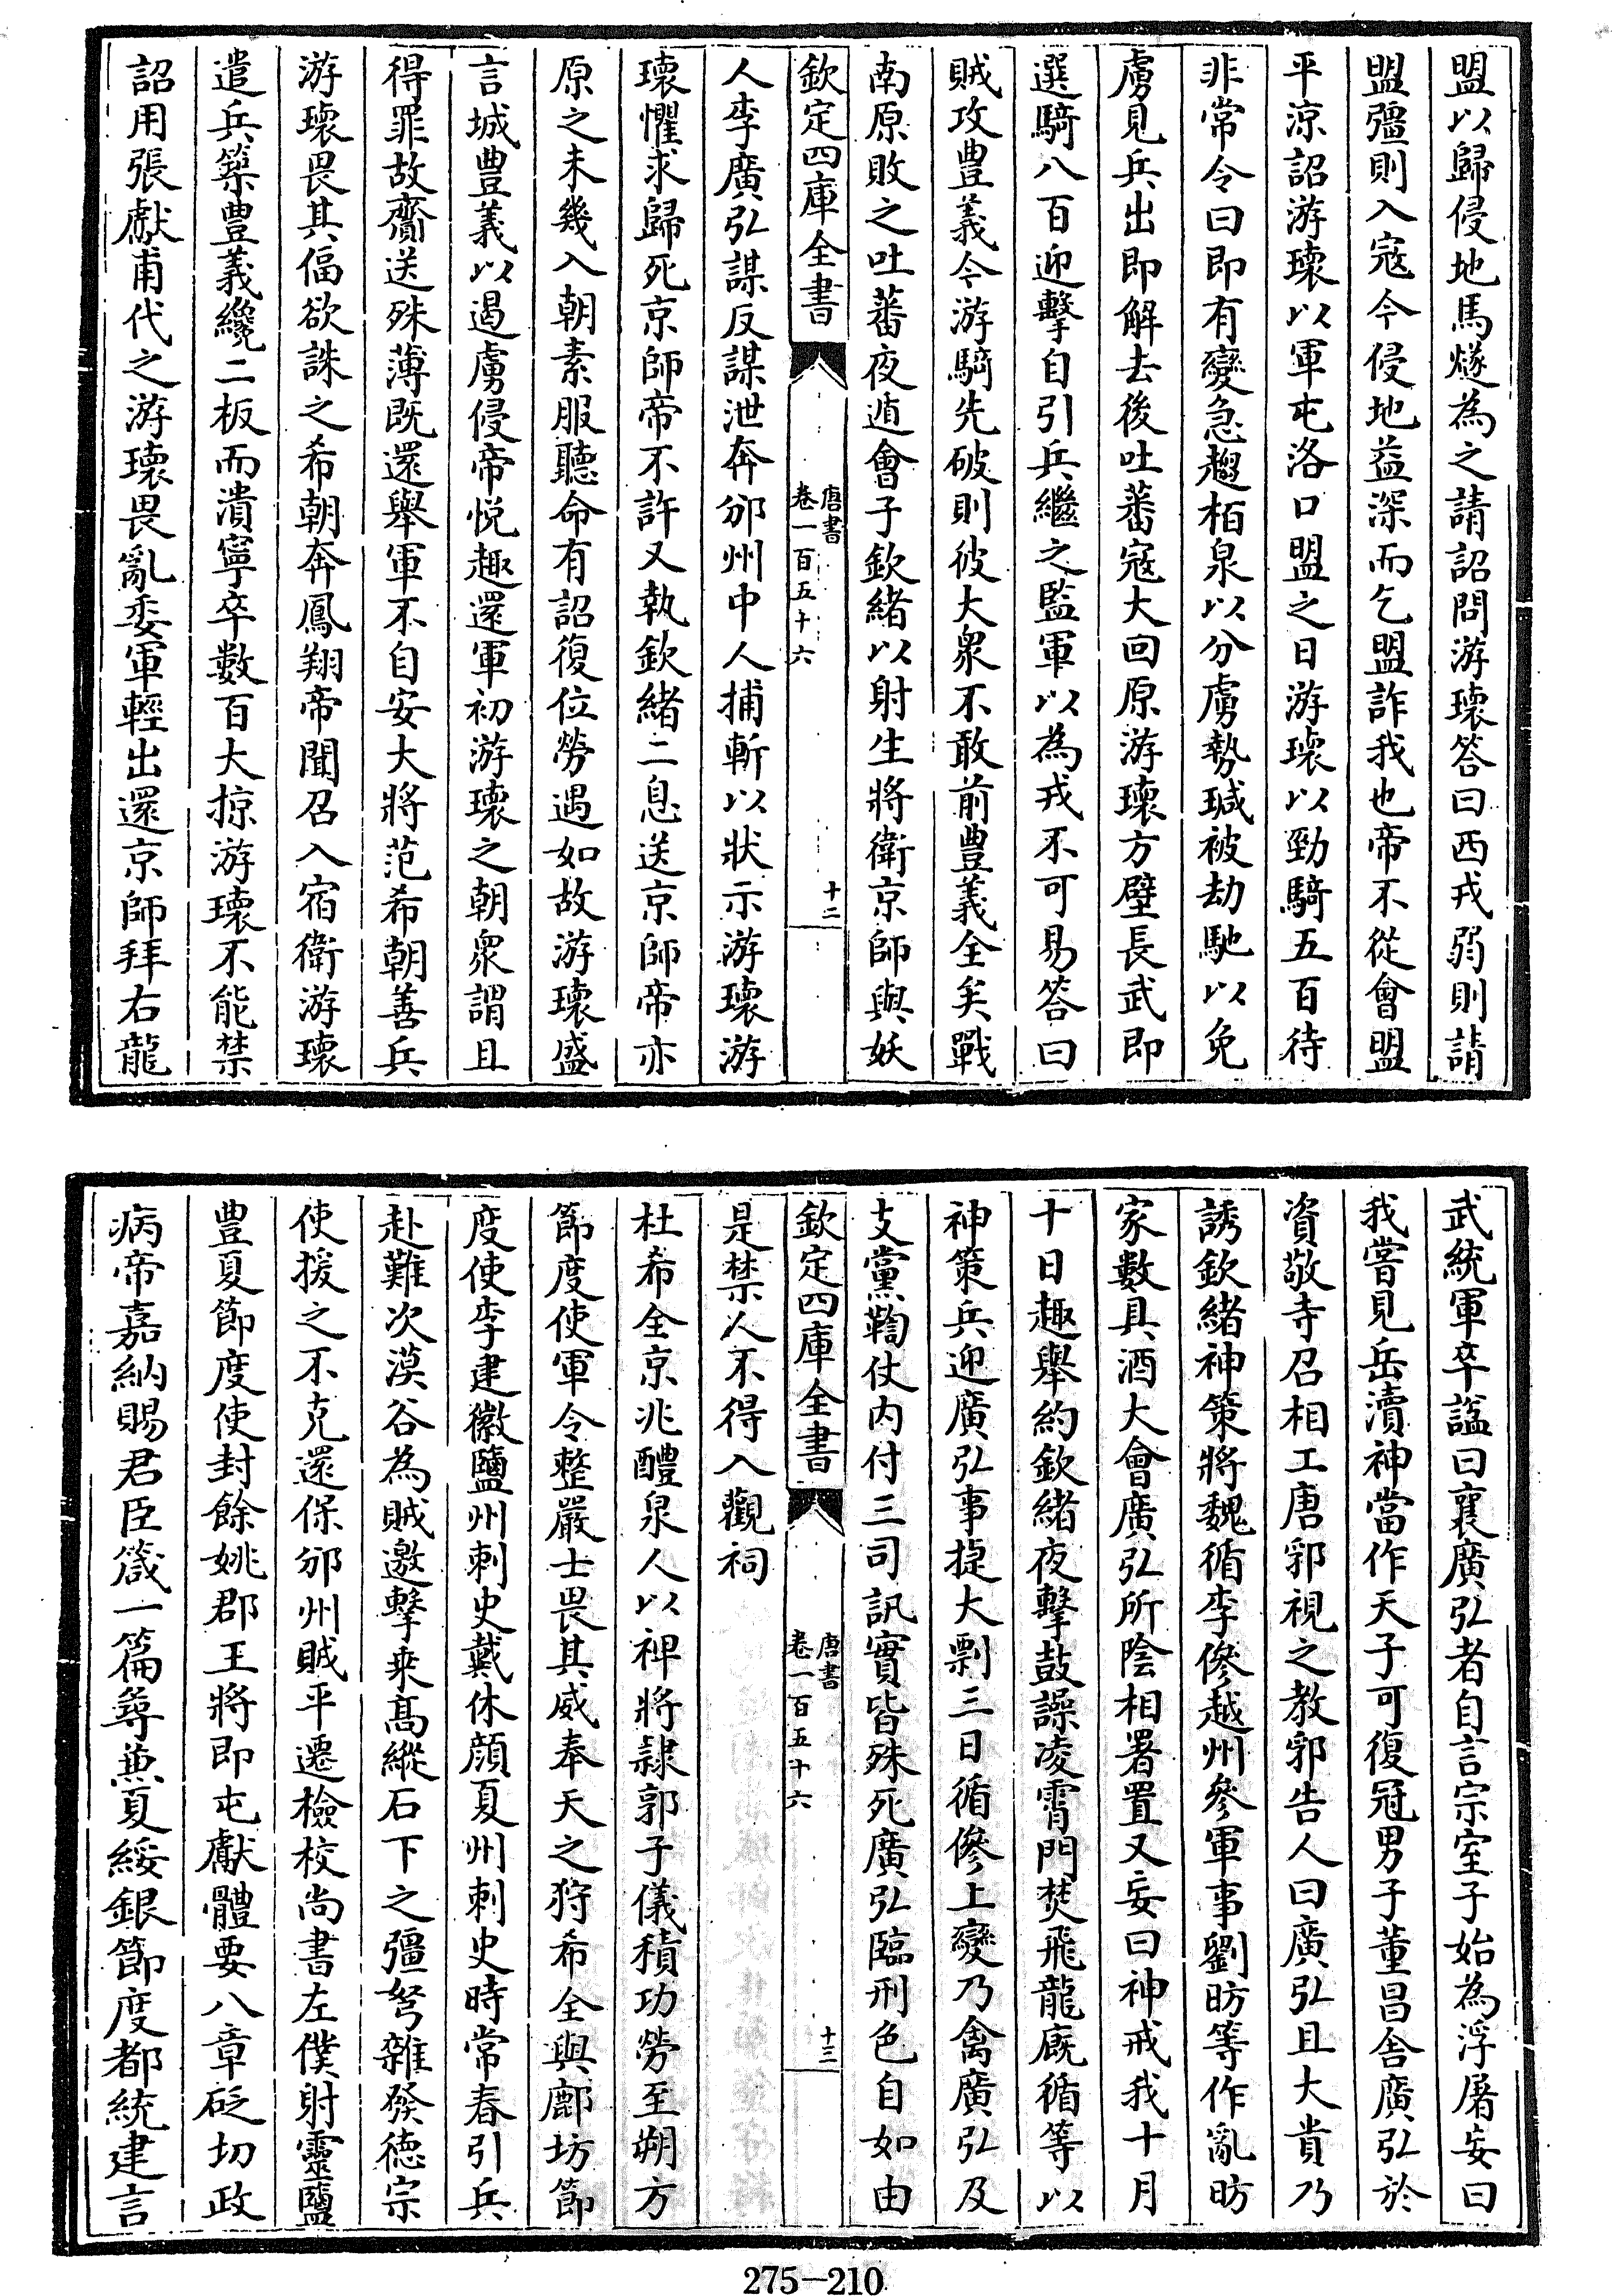 盟以歸侵地馬燧為之請詔問游瓌答曰西戎弱則請
盟彊則入寇今侵地益深而乞盟詐我也帝不從會盟
平涼詔游瓌以軍屯洛口盟之日游瓌以勁騎五百待
非常令曰即有變急趨栢泉以分虜勢瑊被劫馳以免
虜見兵出即解去後吐蕃寇大回原游瓌方壁長武即
選騎八百迎擊自引兵繼之監軍以為戎不可易答曰
賊攻豊義今游騎先破則彼大衆不敢前豊義全矣戰
南原敗之吐蕃夜遁會子欽緒以射生將衛京師與妖
欽定四庫全書
唐書
卷一百五十六
十二
人李廣弘謀反謀泄奔邠州中人捕斬以狀示游瓌游
瓌懼求歸死京師帝不許又執欽緒二息送京師帝亦
原之未幾入朝素服聽命有詔復位勞遇如故游瓌盛
言城豊義以遏虜侵帝悅趣還軍初游瓌之朝衆謂且
得罪故齎送殊薄既還舉軍不自安大將范希朝善兵
游瓌畏其偪欲誅之希朝奔鳳翔帝聞召入宿衛游瓌
遣兵築豊義纔二板而潰寧卒數百大掠游瓌不能禁
詔用張獻甫代之游瓌畏亂委軍輕出還京師拜右龍
武統軍卒諡曰襄廣弘者自言宗室子始為浮屠妄曰
我嘗見岳瀆神當作天子可復冠男子董昌舍廣弘於
資敬寺召相工唐郛視之教郛告人曰廣弘且大貴乃
誘欽緒神策將魏循李傪越州參軍事劉昉等作亂昉
家數具酒大會廣弘所陰相署置又妄曰神戒我十月
十日趣舉約欽緒夜擊鼓譟凌霄門焚飛龍廐循等以
神策兵迎廣弘事捷大剽三日循傪上變乃禽廣弘及
支黨鞫仗內付三司訊實皆殊死廣弘臨刑色自如由
欽定四庫全書
唐書
卷一百五十六
十三
是禁人不得入觀祠
杜希全京兆醴泉人以裨將隷郭子儀積功勞至朔方
節度使軍令整嚴士畏其威奉天之狩希全與鄜坊節
度使李建徽鹽州刺史戴休顔夏州刺史時常春引兵
赴難次漠谷為賊邀擊乗髙縱石下之彊弩雜發德宗
使援之不克還保邠州賊平遷檢校尚書左僕射靈鹽
豊夏節度使封餘姚郡王將即屯獻體要八章砭切政
病帝嘉納賜君臣箴一篇尋兼夏綏銀節度都統建言
275—210